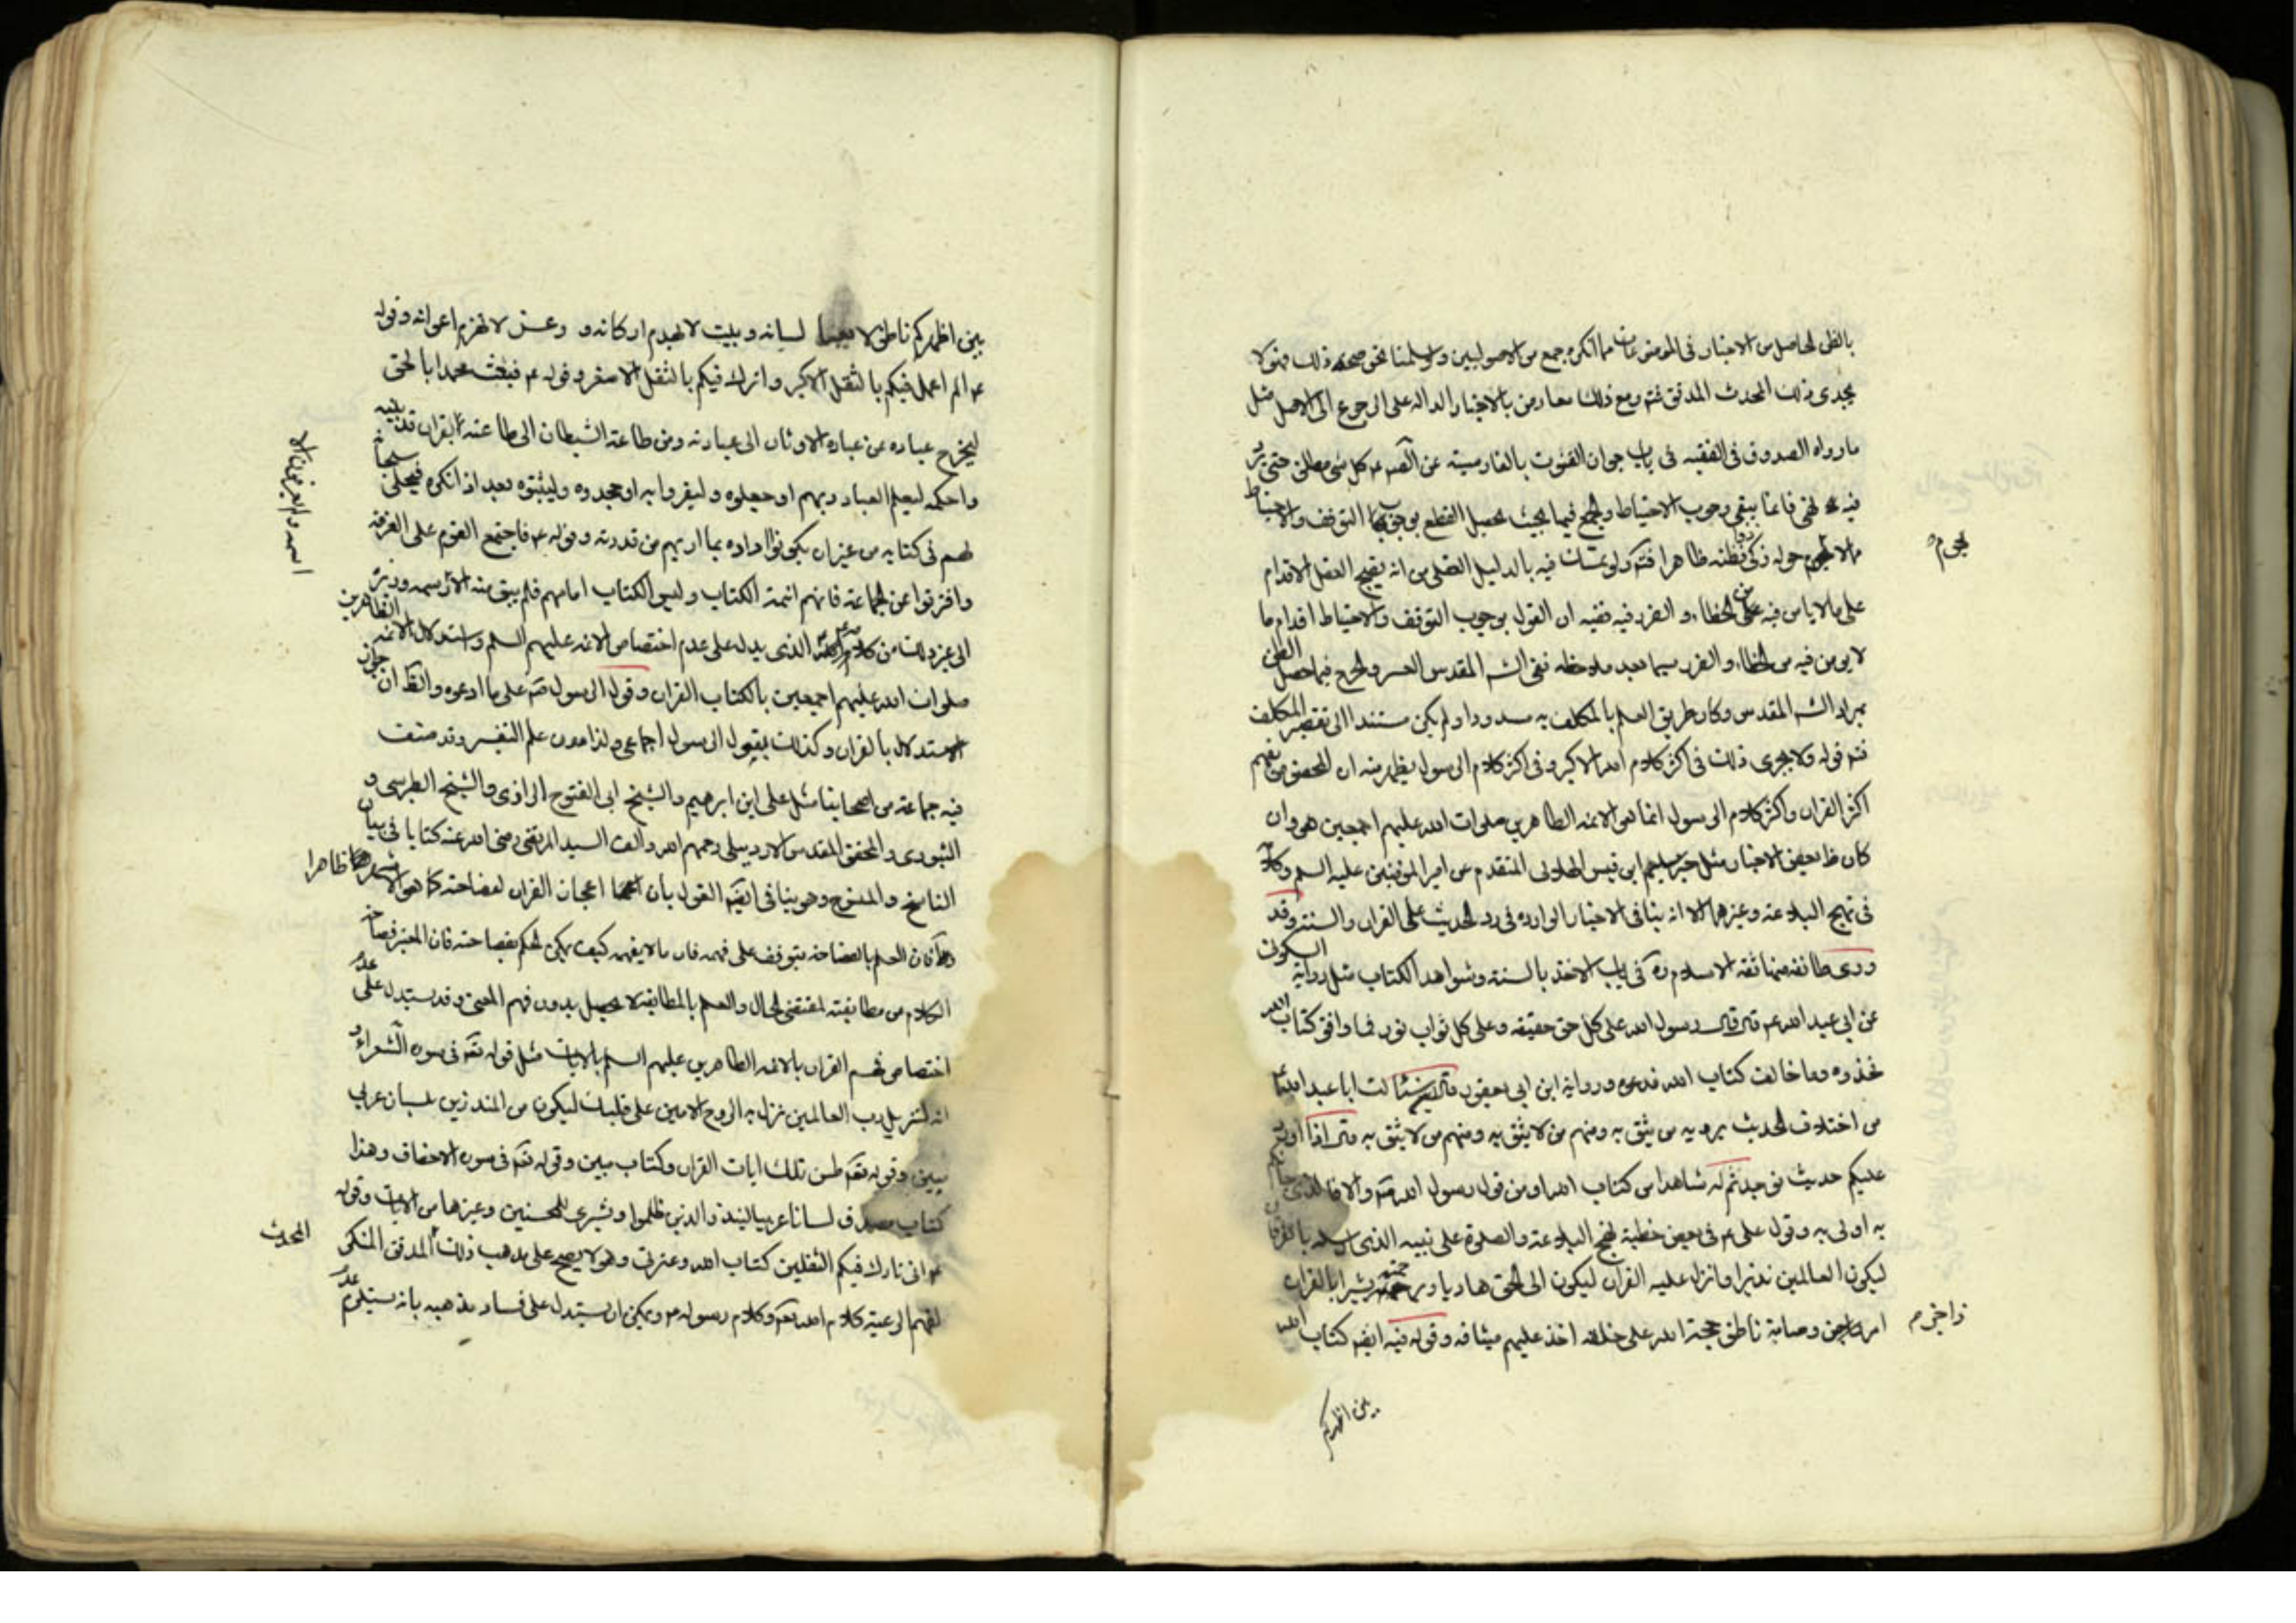 بالظن الحاصل من الاخبار فى الموضوعات مما انكره جمع من الاصوليين ولو سلمنا نحن صحة ذلك فهو لا
يجدى ذلك المحدث المدقق فتم ومع ذلك معارض بالاخبار الدالة على الرجوع الى الاصل مثل
ما رواه الصدوق فى الفقيه فى باب جواز القنوت بالفارسية عن الصم ع كل شئ مطلق حتى يرد
فيه نهى فاما يبقى وجوب الاحتياط والجمع فيما بحيث يحصل القطع بوجوب التوقف والاحتياط
ظاهرا فتم ولو تمسك فيه بالدليل العقلى من انه يقبح العقل الاقدام
على ما لا يامن فيه عن الخطاء والضرر فيه ففيه ان القول بوجوب التوقف والاحتياط اقدام ما
لا يومن فيه من الخطاء والضرر سيما بعد ملاحظة نفى الش المقدس العسر والحرج فيما حصل الظن
بمراد الش المقدس وكان طريق العلم بالمكلف به مسدودا ولم يكن مستندا الى تقصير المكلف
فتم قوله ولا يجرى ذلك فى اكثر كلام الله الاكبر وفى اكثر كلام الرسول يظهر منه ان المخصوص بفهم
اكثر القران واكثر كلام الرسول انما هو الائمه الطاهرين صلوات الله عليهم اجمعين هو وان
كان ظ بعض الاخبار مثل خبر سليم ابن قيس الهلالى المتقدم عن امير المؤمنين عليه السلم وكلامه
فى نهج البلاغة وغيرهما الا انه ينافى الاخبار الواردة فى رد الحديث على القران والسنة وقد
روى طائفة منها ثقة الاسلام ره فى باب الاخذ بالسنة وشواهد الكتاب مثل رواية السكونى
عن ابى عبد الله ع قال قال رسول الله على كل حق حقيقه وعلى كل ثواب نور فما وافق كتاب الله
فخذوه وما خالف كتاب الله فدعوه ورواية ابن ابى يعفور قال سئالت ابا عبد الله ع
من اختلاف الحديث يرويه من يثق به ومنهم من لا يثق به ومنهم من لا يثق به قال اذا اورد
عليكم حديث فوجدتم له شاهدا من كتاب الله او من قول رسول الله ص والا فالذى جاءكم
به اولى به وقول على ع فى بعض خطبه نهج البلاغة والصلوة على نبيه الذى ارسله بالفرقان
ليكون العالمين نذيرا وانزل عليه القران ليكون الى الحق هاديا وبرحمته بشيرا بالقران
امر زاجر وصامت ناطق حجة الله على خلقه اخذ عليهم ميثاقه وقوله فيه ايضا كتاب الله
بين اظهركم
بين اظهركم ناطق لا يعيا لسانه وبيت لا تهدم اركانه و وعز لا تهزم اعوانه وقوله
ع الم اعمل فيكم بالثقل الاكبر واترك فيكم بالثقل الاصغر وقوله ع فبعث محمدا بالحق
ليخرج عباده عن عبادة الاوثان الى عبادته ومن طاعة الشيطان الى طاعته بقران قد بينه
واحكمه ليعلم العباد ربهم اذ جهلوه وليقروا به اذ جحدوه وليثبتوه بعد اذ انكروه فتجلى سبحانه
لهم فى كتابه من غير ان يكونوا راوه بما اريهم من قدرته وقوله ع فاجتمع القوم على الفرقة
وافترقوا عن الجماعة فانهم ائمة الكتاب وليس الكتاب امامهم فلم يبق منه الا رسمه وزبره
الى غير ذلك من كلامه الذى يدل على عدم اختصاص الائمه عليهم السلم واستدلال الائمه الطاهرين
صلوات الله عليهم اجمعين بالكتاب القران وقول الرسول ص على ما ادعوه والظ ان جواز
الاستدلال بالقران وكذلك بقول الرسول اجماعى ولذا دون علم التفسير وقد صنف
فيه جماعة من اصحابنا مثل على ابن ابرهيم والشيخ ابى الفتوح الرازى والشيخ الطبرسى و
والمحقق المقدس الاردبيلى رحمهم الله والف السيد المرتضى رضى الله عنه كتابا فى بيان
الناسخ والمنسوخ وهو ينافى ايضا القول بان اعجاز القران لفصاحته كما هو الاشهر ظاهرا
فان العلم بالفصاحة يتوقف على فهمه فان ما لا يفهم كيف يمكن الحكم بفصاحته فان المعتبر فصاحة
الكلام من مطابقته لمقتضى الحال والعلم بالمطابقة لا يحصل بدون فهم المعنى وقد يستدل على عدم
اختصاص فهم القران بالائمه الطاهرين عليهم السلم بالايات مثل قوله تعه فى سورة الشعراء و
انه لتنزيل رب العالمين نزل به الروح الامين على قلبك ليكون من المنذرين بلسان عربى
مبين وقوله تعه طس تلك ايات القران وكتاب مبين وقوله تعه فى سورة الاحقاف وهذا
كتاب مصدق لسانا عربيا لينذر الذين ظلموا وبشرى للمحسنين وغيرها من الايات وقوله
ع انى تارك فيكم الثقلين كتاب الله وعترتى وهو لا يصح على مذهب ذلك المحدث المدقق المنكر
لفهم الرعية كلام الله تعه وكلام رسوله ص ويمكن ان يستدل على فساد مذهبه بانه يستلزم عدم